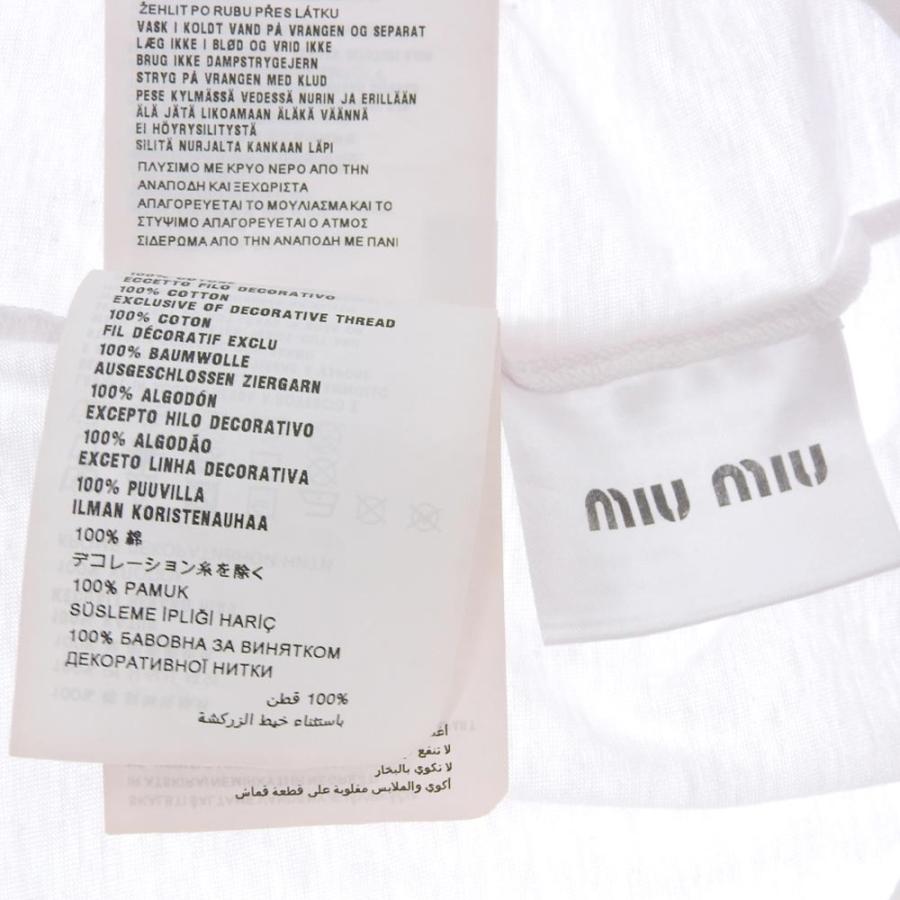 ŽEHLIT PO RUBU PŘES LÁTKU
VASK I KOLDT VAND PÅ VRANGEN OG SEPARAT
LÆG IKKE I BLØD OG VRID IKKE
BRUG IKKE DAMPSTRYGEJERN
STRYG PÅ VRANGEN MED KLUD
PESE KYLMÄSSÄ VEDESSÄ NURIN JA ERILLÄÄN
ÄLÄ JÄTÄ LIKOAMAAN ÄLÄKÄ VÄÄNNÄ
EI HÖYRYSILITYSTÄ
SILITÄ NURJALTA KANKAAN LÄPI
ΠΛΥΣΙΜΟ ΜΕ ΚΡΥΟ ΝΕΡΟ ΑΠΟ ΤΗΝ
ΑΝΑΠΟΔΗ ΚΑΙ ΞΕΧΩΡΙΣΤΑ
ΑΠΑΓΟΡΕΥΕΤΑΙ ΤΟ ΜΟΥΛΙΑΣΜΑ ΚΑΙ ΤΟ
ΣΤΥΨΙΜΟ ΑΠΑΓΟΡΕΥΕΤΑΙ Ο ΑΤΜΟΣ
ΣΙΔΕΡΩΜΑ ΑΠΟ ΤΗΝ ΑΝΑΠΟΔΗ ΜΕ ΠΑΝΙ
100% COTONE
ECCETTO FILO DECORATIVO
100% COTTON
EXCLUSIVE OF DECORATIVE THREAD
100% COTON
FIL DÉCORATIF EXCLU
100% BAUMWOLLE
AUSGESCHLOSSEN ZIERGARN
100% ALGODÓN
EXCEPTO HILO DECORATIVO
100% ALGODÃO
EXCETO LINHA DECORATIVA
100% PUUVILLA
ILMAN KORISTENAUHAA
100% 綿
デコレーション糸を除く
100% PAMUK
SÜSLEME İPLİĞİ HARİÇ
100% БАВОВНА ЗА ВИНЯТКОМ
ДЕКОРАТИВНОЇ НИТКИ
100% قطن
باستثناء خيط الزركشة
لا تنقع
لا تكوي بالبخار
أكوي والملابس مقلوبة على قطعة قماش
MIU MIU